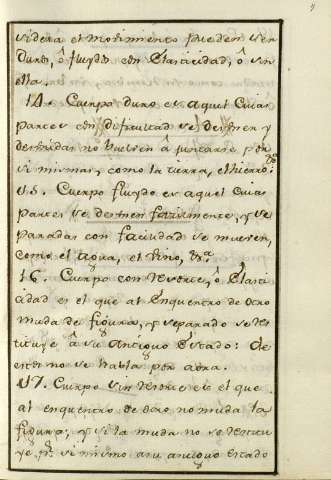 sidera el Movimiento pueden ser
Duros, ô fluydos con Elasticidad, ô sin
ella.
14. Cuerpo duro es aquel cuias
partes con dificultad se desunen y
desunidas no buelven â juntarse por
si mismas, como la tierra, el hierro &a
15. Cuerpo fluydo es aquel cuias
partes se desunen facilmente, y se
paradas con facilidad se mueven,
como el agua, el vino, &a.
16. Cuerpo con resorte, ô Elasti
cidad es el que al Enquentro de otro
muda de figura, y separado se res
tituye â su Antiguo Estado: de
este no se habla por aora.
17. Cuerpo sin resorte es el que
al enquentro de otro no muda la
figura; y si la muda no se restitu
ye pr. si mismo a su antiguo estado